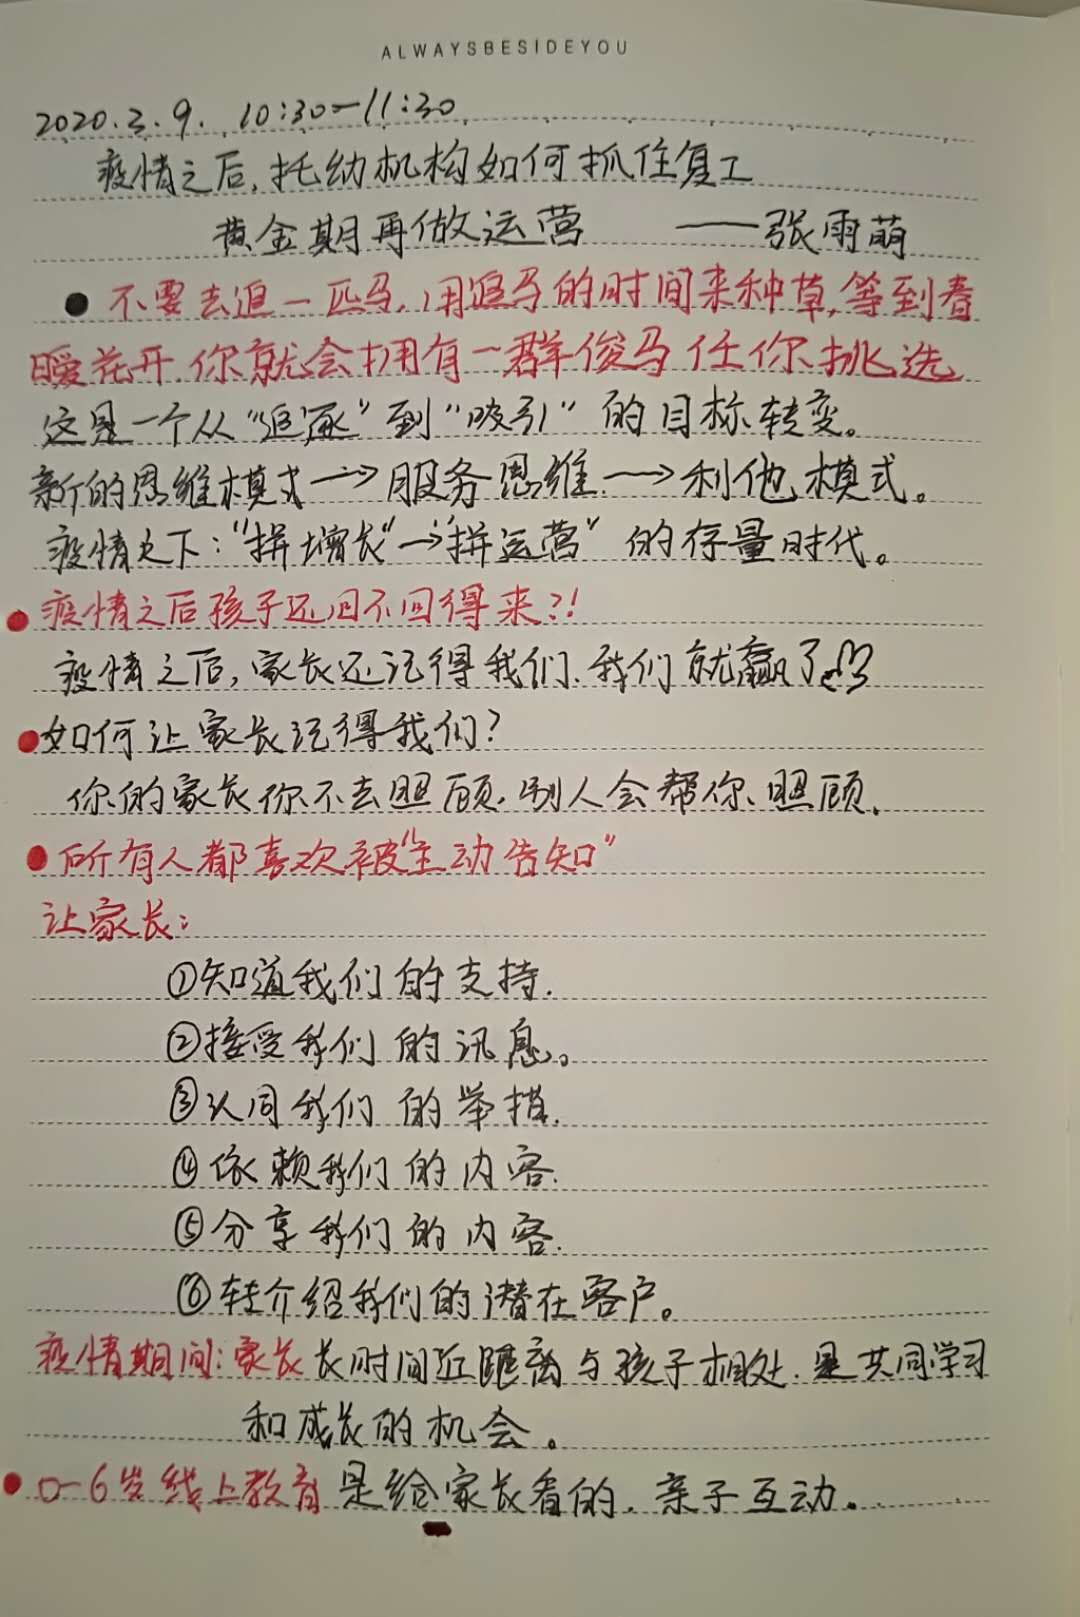 ALWAYSBESIDEYOU
2020.3.9. 10:30—11:30
疫情之后,托幼机构如何抓住复工
黄金期再做运营 ——张雨萌
不要去追一匹马,用追马的时间来种草,等到春
暖花开.你就会拥有一群俊马任你挑选
这是一个从“追逐”到“吸引”的目标转变。
新的思维模式→服务思维→利他模式。
疫情之下:“拼增长”→“拼运营”的存量时代。
疫情之后孩子还回不回得来?!
疫情之后,家长还记得我们.我们就赢了
如何让家长记得我们?
你的家长你不去照顾.别人会帮你照顾.
所有人都喜欢被“主动告知”
让家长:
①知道我们的支持.
②接受我们的讯息。
③认同我们的举措.
④依赖我们的内容.
⑤分享我们的内容.
⑥转介绍我们的潜在客户。
疫情期间:家长长时间近距离与孩子相处.是共同学习
和成长的机会。
0-6岁线上教育是给家长看的.亲子互动。